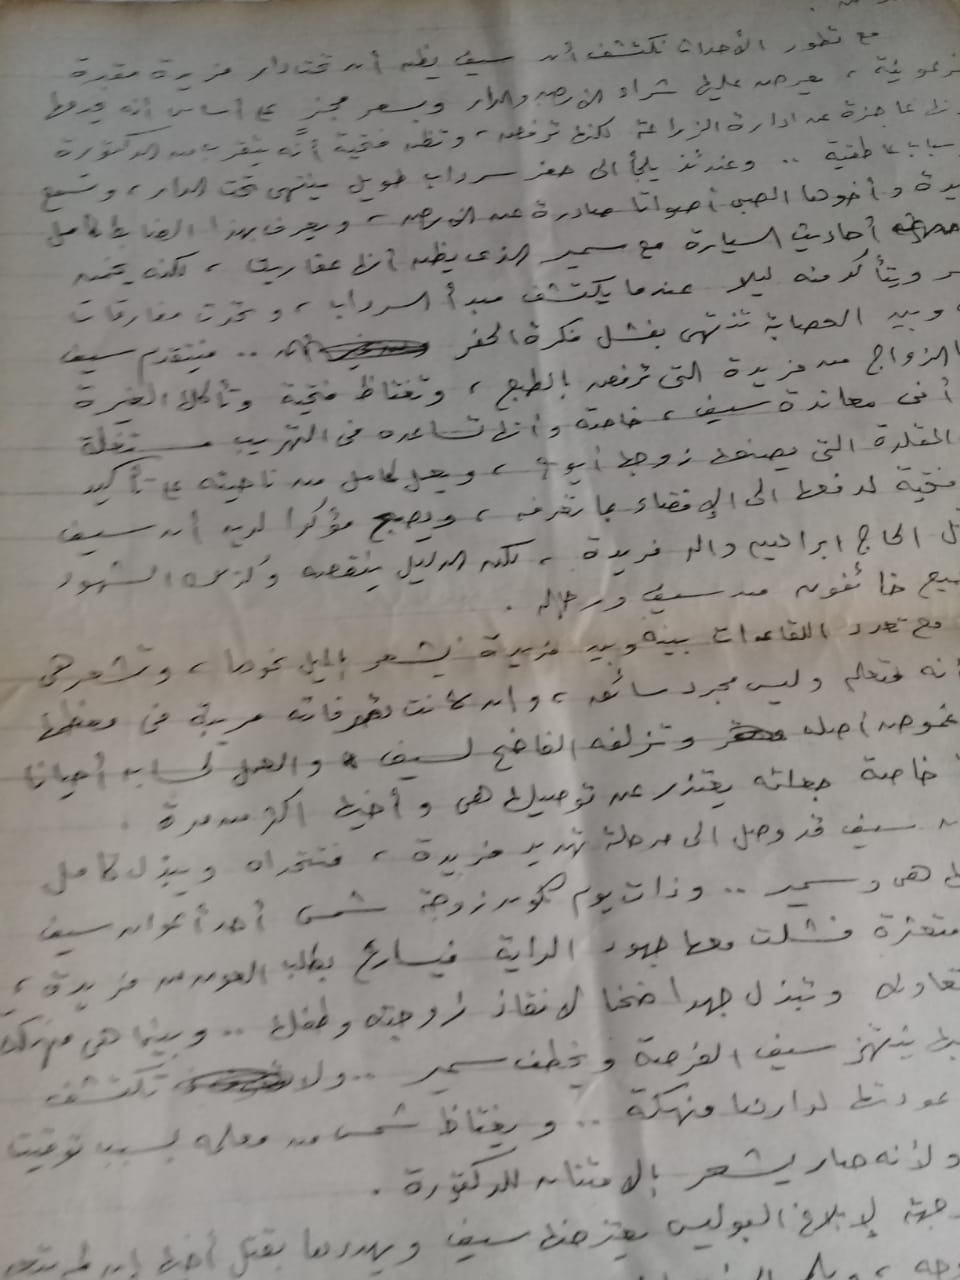 مع تطور الأحداث نكتشف أن سيف يظن أن تحت دار فريدة مقبرة
فرعونية ، يعرض عليها شراء الأرض والدار وبسعر مجزٍ على أساس أنه
عاجزة عن ادارة الزراعة لكنها ترفض ، وتظن فتحية أنه يتقرب من الدكتورة
لأسباب عاطفية .. وعندئذ يلجأ الى حفر سرداب طويل ينتهى تحت الدار ، وتسمع
فريدة وأخوها الصبى أصواتا صادرة عن الأرض ، ويعرف بهذا الضابط كامل
أحاديث السيارة مع سمير الذى يظن أنها عفاريت ، لكنه يخمن
ويتأكد منه ليلا عندما يكتشف مبدأ السرداب ، وتحدث مفارقات
وبين العصابة تنتهى بفشل فكرة الحفر .. فيتقدم سيف
الزواج من فريدة التى ترفض بالطبع ، وتغتاظ فتحية وتأكلها الغيرة
فى معاندة سيف ، خاصة وأنها تساعده فى التهريب مستغلة
المقلدة التى يصنعها زوجها أيوب ، ويعمل كامل من ناحيته على تأكيد
فتحية لدفعها الى الإفضاء بما تعرفه ، ويصبح مؤكدا لديه أن سيف
الحاج ابراهيم والد فريدة ، لكن الدليل ينقصه ولأن الشهود
خائفون من سيف ورجاله .
مع تعدد اللقاءات بينه وبين فريدة يشعر بالميل نحوها ، وتشعر هى
أنه متعلم وليس مجرد سائق ، وإن كانت تصرفاته مريبة فى معظمها
غموض أصله وتزلفه الفاضح لسيف والعمل لحسابه أحيانا
خاصة جعلته يعتذر عن توصيلها هى وأخيها اكثر من مرة .
سيف قد وصل الى مرحلة تهديد فريدة ، فتتحداه ويبذل كامل
هى وسمير .. وذات يوم تكون زوجة شمس أحد أعوان سيف
متعثرة فشلت معها جهود الداية فيسارع بطلب العون من فريدة ،
وتبذل جهدا ضخما لانقاذ زوجته وطفلها .. وبينما هى منهمكة
ينتهز سيف الفرصة ويخطف سمير .. ولا تكتشف
عودتها لدارها منهكة .. ويغتاظ شمس من معلمه بسبب توقيت
ولأنه صار يشعر بالامتنان للدكتورة .
لإبلاغ البوليس يعترضها سيف ويهددها بقتل أخيها إن لم